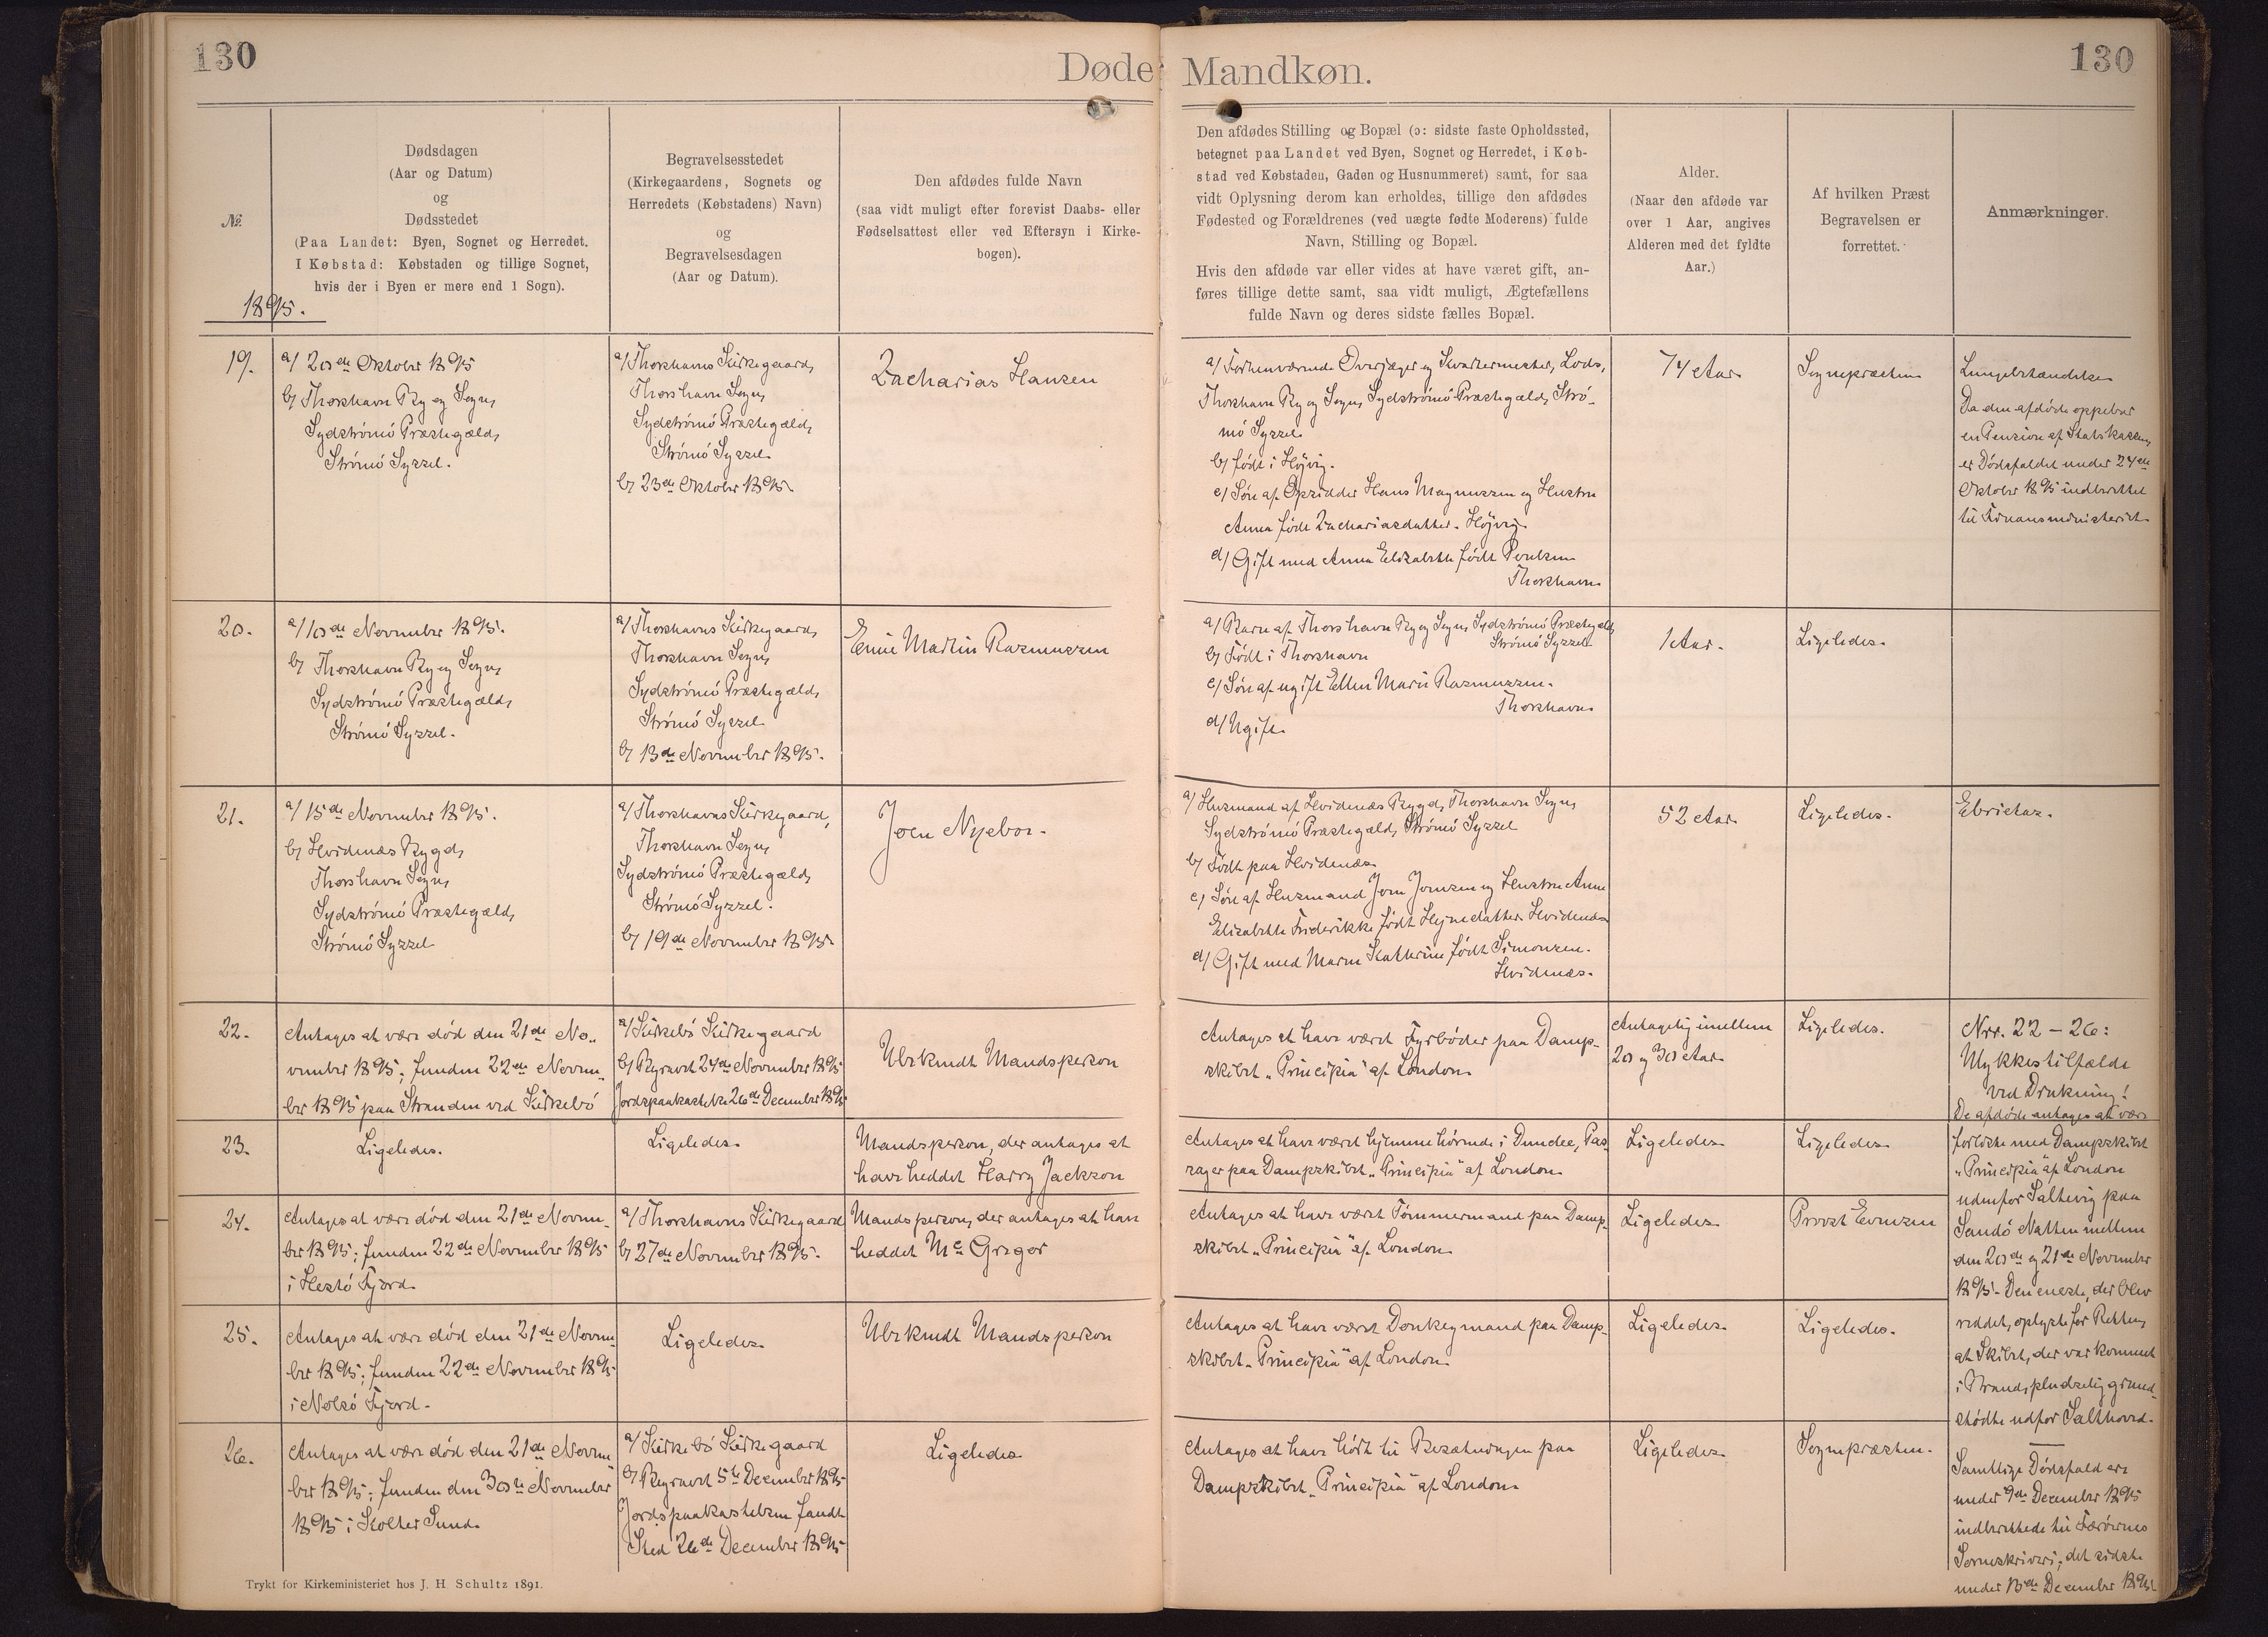 130
Døde
Mandkøn.
130
№
1895.
Dødsdagen
(Aar og Datum)
og
Dødsstedet
(Paa Landet: Byen, Sognet og Herredet.
I Købstad: Købstaden og tillige Sognet,
hvis der i Byen er mere end 1 Sogn).
Begravelsesstedet
(Kirkegaardens, Sognets og
Herredets (Købstadens) Navn)
og
Begravelsesdagen
(Aar og Datum).
Den afdødes fulde Navn
(saa vidt muligt efter forevist Daabs- eller
Fødselsattest eller ved Eftersyn i Kirke-
bogen).
Den afdødes Stilling og Bopæl (ɔ: sidste faste Opholdssted,
betegnet paa Landet ved Byen, Sognet og Herredet, i Køb-
stad ved Købstaden, Gaden og Husnummeret) samt, for saa
vidt Oplysning derom kan erholdes, tillige den afdødes
Fødested og Forældrenes (ved uægte fødte Moderens) fulde
Navn, Stilling og Bopæl.
Hvis den afdøde var eller vides at have været gift, an-
føres tillige dette samt, saa vidt muligt, Ægtefællens
fulde Navn og deres sidste fælles Bopæl.
Alder.
(Naar den afdøde var
over 1 Aar, angives
Alderen med det fyldte
Aar.)
Af hvilken Præst
Begravelsen er
forrettet.
Anmærkninger.
19.
a/ 20de Oktober 1895
b/ Thorshavn By og Sogn,
Sydströmö Præstegæld,
Strömö Syssel.
a/ Thorshavns Kirkegaard,
Thorshavn Sogn,
Sydströmö Præstegæld,
Strömö Syssel.
b/ 23de Oktober 1895.
Zacharias Hansen
a/ Forhenværende Overjæger og Kvartermester, Lods,
Thorshavn By og Sogn, Sydströmö Præstegæld, Strö-
mö Syssel.
b/ født i Höjvig.
c/ Søn af Opsidder Hans Magnussen og Hustru
Anna født Zachariasdatter. Höjvig.
d/ Gift med Anna Elisabeth født Poulsen
Thorshavn
74 Aar
Sognepræsten
Lungebetændelse
Da den afdøde oppebar
en Pension af Statskassen,
er Dødsfaldet under 24de
Oktober 1895 indberettet
til Finansministeriet.
20.
a/ 10de November 1895.
b/ Thorshavn By og Sogn,
Sydströmö Præstegæld,
Strömö Syssel.
a/ Thorshavns Kirkegaard,
Thorshavn Sogn,
Sydströmö Præstegæld,
Strömö Syssel
b/ 13de November 1895.
Martin Rasmussen
a/ Barn af Thorshavn By og Sogn, Sydströmö Præstegæld,
Strömö Syssel.
b/ Født i Thorshavn
c/ Søn af ugift Ellen Marie Rasmussen.
Thorshavn
d/ Ugift.
1 Aar.
Ligeledes.
21.
a/ 15de November 1895.
b/ Hvidenæs Bygd,
Thorshavn Sogn,
Sydströmö Præstegæld,
Strömö Syssel
a/ Thorshavns Kirkegaard,
Thorshavn Sogn,
Sydströmö Præstegæld,
Strömö Syssel.
b/ 19de November 1895.
Joen Nyebor.
a/ Husmand af Hvidenæs Bygd, Thorshavn Sogn,
Sydströmö Præstegæld, Strömö Syssel
b/ Født paa Hvidenæs
c/ Søn af Husmand Joen Joensen og Hustru Anne
Elisabeth Friderikke født Hejnedatter. Hvidenæs
d/ Gift med Maren Kathrine født Simonsen.
Hvidenæs.
52 Aar
Ligeledes.
Ebrietas.
22.
Antages at være død den 21de No-
vember 1895; funden 22de Novem-
ber 1895 paa Stranden ved Kirkebö
a/ Kirkebö Kirkegaard
b/ Begravet 24de November 1895
Jordspaakastelse 26de December 1895
Ubekendt Mandsperson
Antages at have været Fyrböder paa Damp-
skibet „Principia" af London.
Antagelig imellem
20 og 30 Aar
Ligeledes.
Nrr. 22 – 26:
Ulykkestilfælde
ved Drukning!
De afdøde antages at være
forliste med Dampskibet
„Principia" af London
udenfor Saltevig paa
Sandö Natten mellem
den 20de og 21de November
1895. Den eneste, der blev
reddet, oplyste for Retten,
at Skibet, der var kommet
i Brand, pludselig grund-
stödte udfor Salthoved.
Samtlige Dödsfald ere
under 9de December 1895
indberettede til Færöernes
Sorenskriveri; det sidste
under 13de December 1895.
23.
Ligeledes.
Ligeledes.
Mandsperson, der antages at
have heddet Harry Jackson
Antages at have været hjemmehörende i Dundee, Pas-
sager paa Dampskibet „Principia" af London.
Ligeledes
Ligeledes
24.
Antages at være død den 21de Novem-
ber 1895; funden 22de November 1895
i Hestö Fjord.
a/ Thorshavns Kirkegaard
b/ 27de November 1895.
Mandsperson, der antages at have
heddet Mc Gregor
Antages at have været Tömmermand paa Damp-
skibet „Principia" af London.
Ligeledes
Provst Evensen
25.
Antages at være død den 21de Novem-
ber 1895; funden 22de November 1895
i Nolsö Fjord.
Ligeledes
Ubekendt Mandsperson
Antages at have været Donkeymand paa Damp-
skibet „Principia" af London.
Ligeledes.
Ligeledes.
26.
Antages at være død den 21de Novem-
ber 1895; funden den 30te November
1895 i Kolter Sund.
a/ Kirkebö Kirkegaard
b/ Begravet 5te December 1895
Jordspaakastelsen fandt
Sted 26de December 1895
Ligeledes
Antages at have hört til Besætningen paa
Dampskibet „Principia" af London.
Ligeledes
Sognepræsten.
Trykt for Kirkeministeriet hos J. H. Schultz 1891.